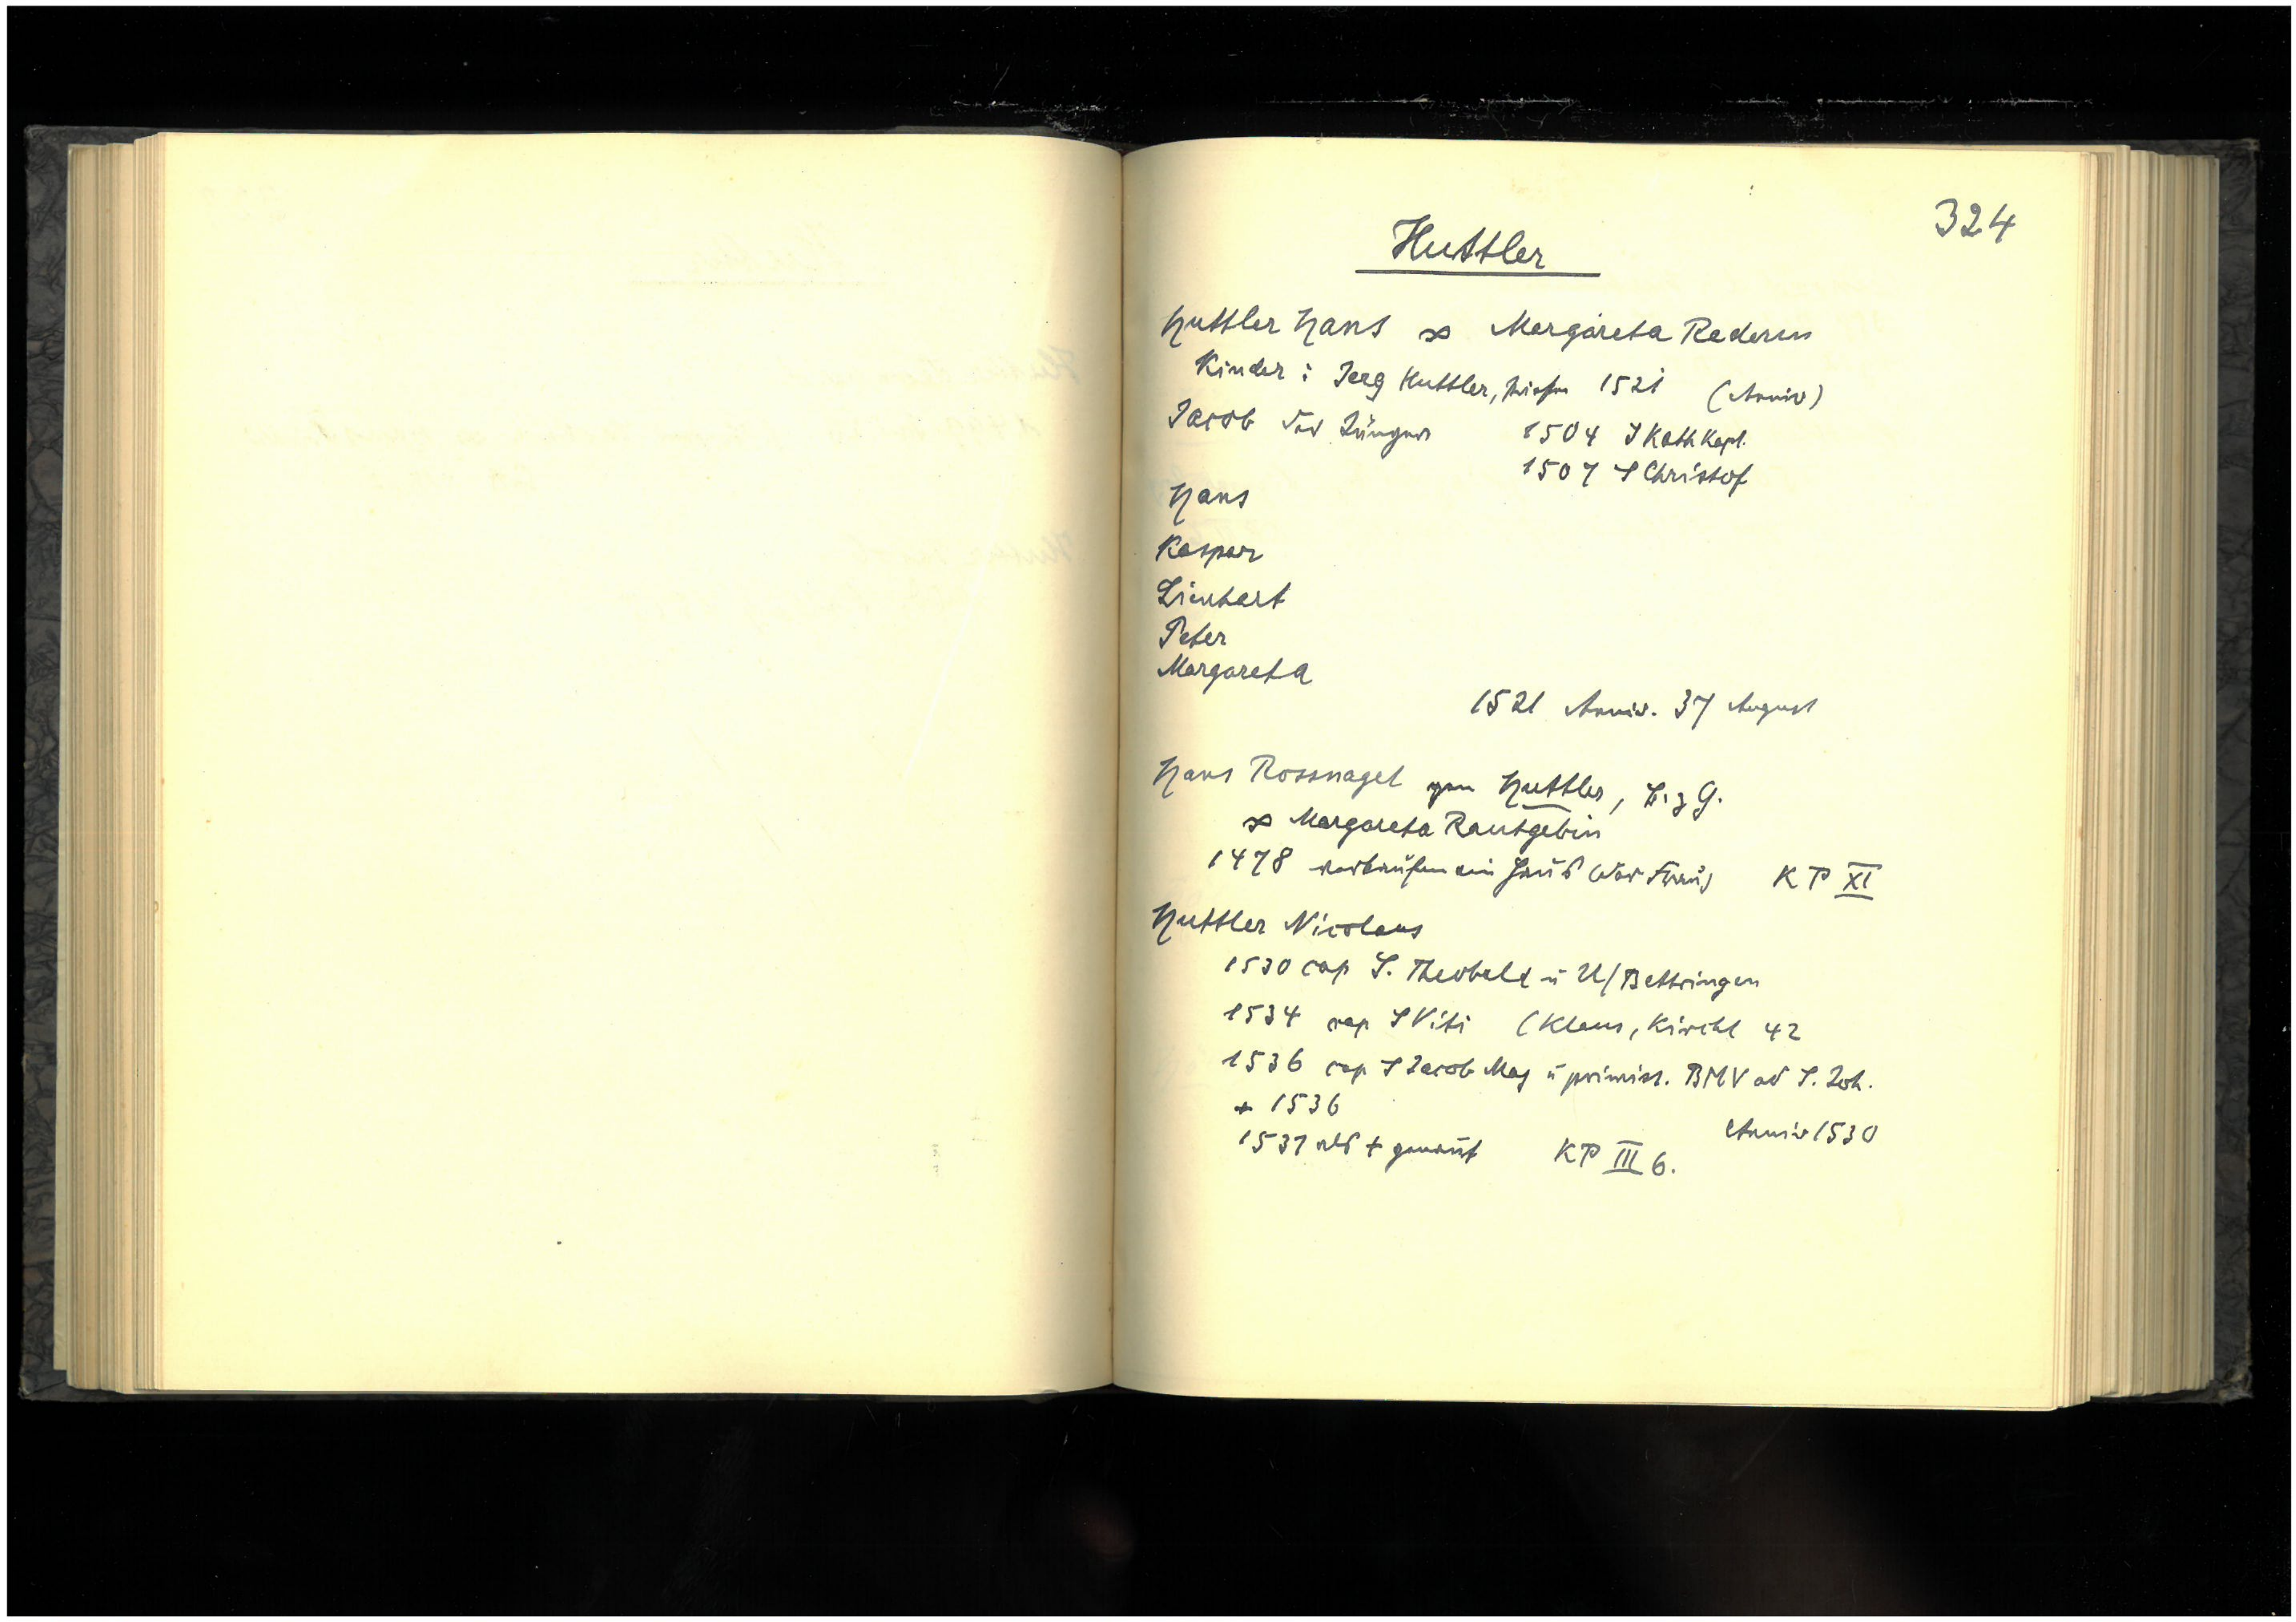 324
Huttler
Huttler Hans ∞ Margareta Rederin
Kinder: Jerg Huttler, 1521 (Anniv)
Jacob der Jünger 1504 S Kath Kapl.
1507 S Christof
Hans
Kaspar
Lienhart
Peter
Margareta
1521 Anniv. 37 August
Hans Rossnagel gen Huttler, B. z G.
∞ Margareta Rautgebin
1478 verkaufen ein Haus (der Frau) KP XI
Huttler Nicolaus
1530 cap S. Theobald u U/Bettringen
1534 cap S Viti (Klaus, Kirchl 42
1536 cap S Jacob Maj u primiss. BMV ad S. Joh.
+ 1536
Anniv 1530
1537 als + genannt KP III 6.